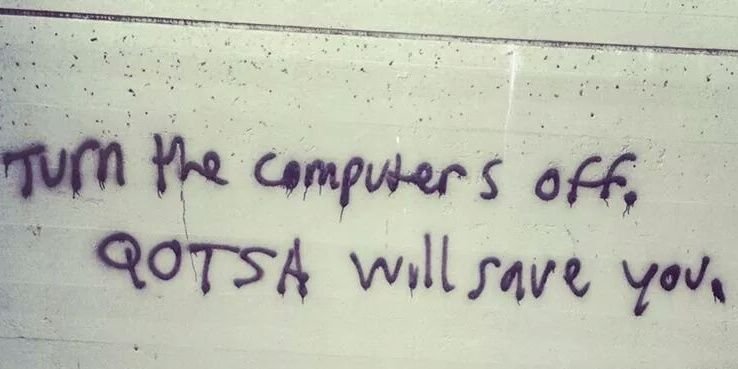 Turn the computers off.
QOTSA will save you.